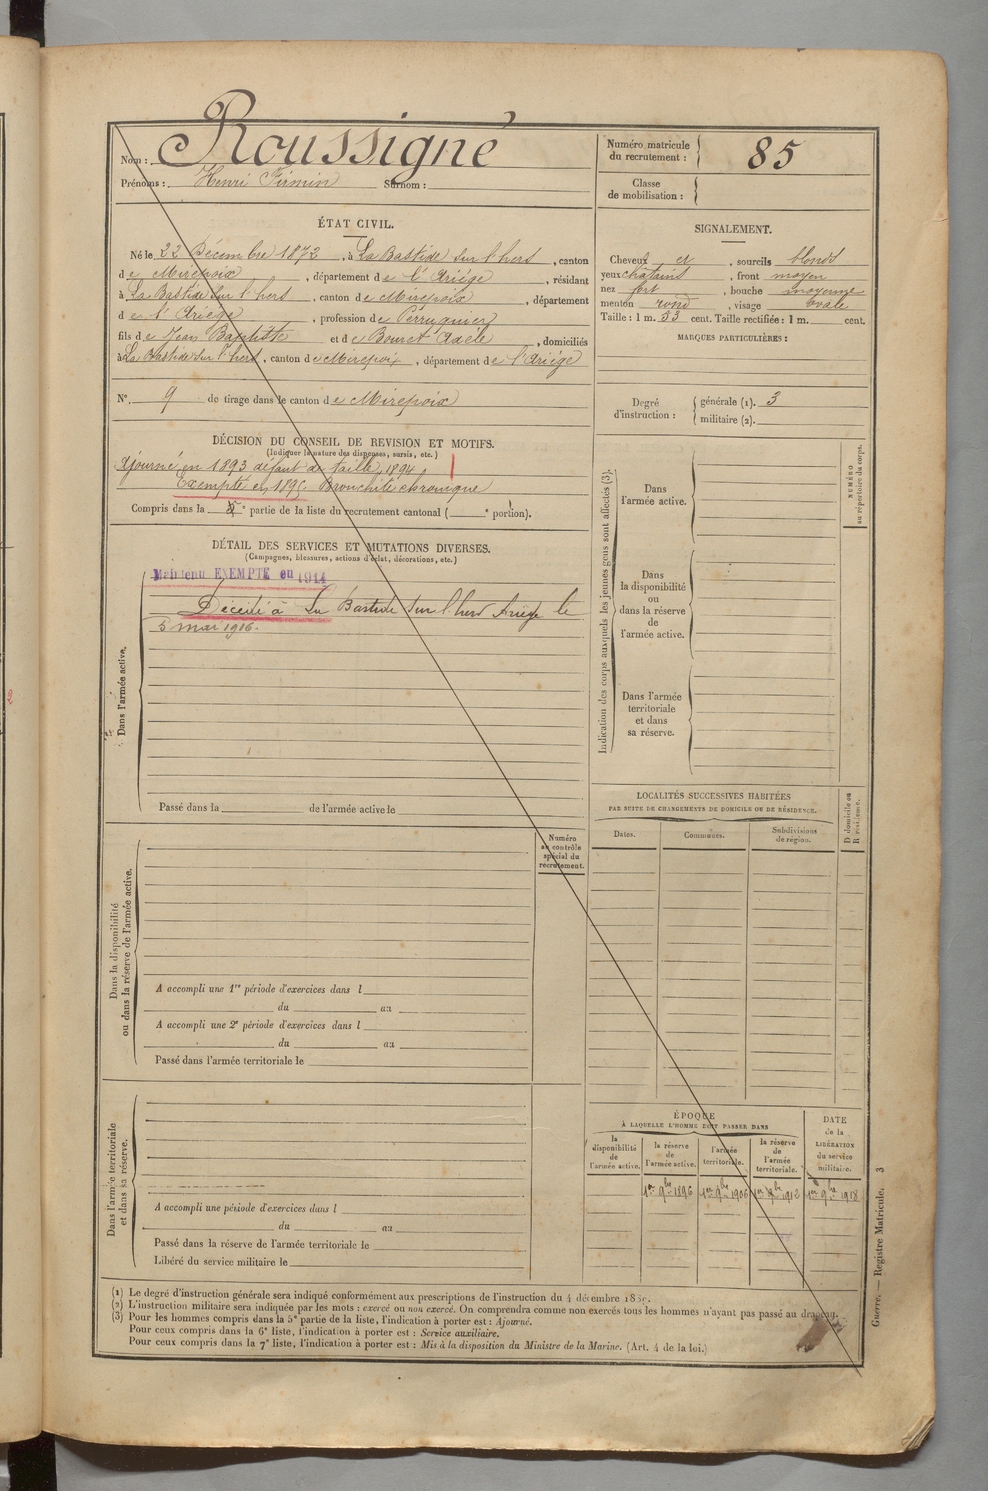 Nom : Roussigné
Prénoms : Henri Firmin Surnom :
Numéro matricule du recrutement : 85
Classe de mobilisation :
ÉTAT CIVIL.
Né le 22 Décembre 1872, à La Bastide sur l'hers, canton
de Mirepoix, département de l'Ariège, résidant
à La Bastide sur l'hers, canton de Mirepoix, département
de l'Ariège, profession de Perruquier
fils de Jean Baptiste et de Bouret Adèle, domiciliés
à La Bastide sur l'hers, canton de Mirepoix, département de l'Ariège
N°. 9 de tirage dans le canton de Mirepoix
SIGNALEMENT.
Cheveux et, sourcils blonds
yeux chatains, front moyen
nez fort, bouche moyenne
menton rond, visage ovale
Taille : 1 m. 53 cent. Taille rectifiée : 1 m. cent.
MARQUES PARTICULIÈRES :
Degré d'instruction : générale (1). 3
militaire (2).
DÉCISION DU CONSEIL DE REVISION ET MOTIFS.
(Indiquer la nature des dispenses, sursis, etc.)
Ajourné en 1893 défaut de taille, 1894
Exempté en 1895. Bronchite chronique
Compris dans la 5e partie de la liste du recrutement cantonal ( e portion).
DÉTAIL DES SERVICES ET MUTATIONS DIVERSES.
(Campagnes, blessures, actions d'éclat, décorations, etc.)
Maintenu EXEMPTÉ en 1914
Décédé à La Bastide sur l'hers Ariège le
5 mai 1916.
Dans l'armée active.
Passé dans la de l'armée active le
Indication des corps auxquels les jeunes gens sont affectés (3).
NUMÉRO au répertoire du corps.
Dans
l'armée active.
Dans
la disponibilité
ou
dans la réserve
de
l'armée active.
Dans l'armée
territoriale
et dans
sa réserve.
LOCALITÉS SUCCESSIVES HABITÉES
PAR SUITE DE CHANGEMENTS DE DOMICILE OU DE RÉSIDENCE.
Dates. Communes. Subdivisions de région.
D domicile ou
R résidence.
Numéro
au contrôle
spécial du
recrutement.
Dans la disponibilité
ou dans la réserve de l'armée active.
A accompli une 1re période d'exercices dans l
du au
A accompli une 2e période d'exercices dans l
du au
Passé dans l'armée territoriale le
Dans l'armée territoriale
et dans sa réserve.
A accompli une période d'exercices dans l
du au
Passé dans la réserve de l'armée territoriale le
Libéré du service militaire le
ÉPOQUE
À LAQUELLE L'HOMME DOIT PASSER DANS
la disponibilité de l'armée active.
la réserve de l'armée active.
l'armée territoriale.
la réserve de l'armée territoriale.
DATE de la LIBÉRATION du service militaire.
1er 9bre 1896 1er 9bre 1906 1er 9bre 1912 1er 9bre 1918
(1) Le degré d'instruction générale sera indiqué conformément aux prescriptions de l'instruction du 4 décembre
(2) L'instruction militaire sera indiquée par les mots : exercé ou non exercé. On comprendra comme non exercés tous les hommes n'ayant pas passé au drapeau.
(3) Pour les hommes compris dans la 5e partie de la liste, l'indication à porter est : Ajourné.
Pour ceux compris dans la 6e liste, l'indication à porter est : Service auxiliaire.
Pour ceux compris dans la 7e liste, l'indication à porter est : Mis à la disposition du Ministre de la Marine. (Art. 4 de la loi.)
Guerre. — Registre Matricule. 3